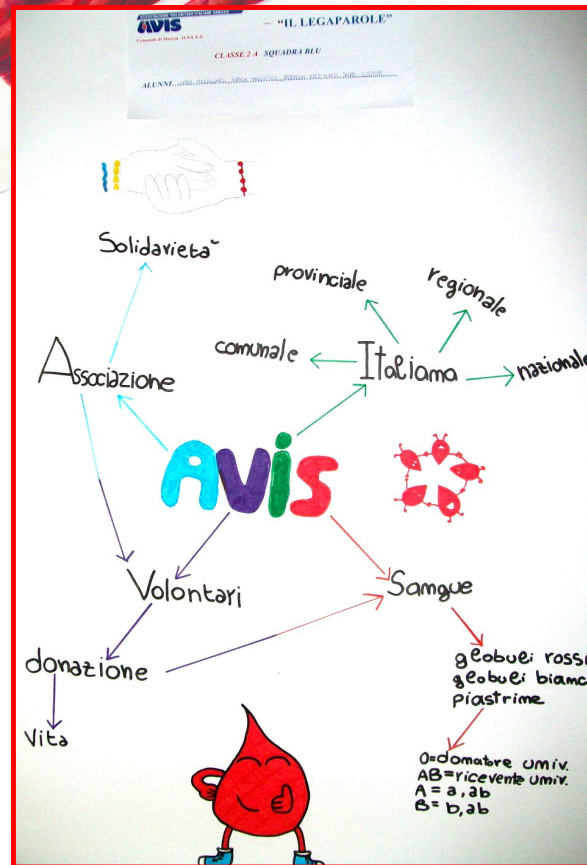 AVIS – "IL LEGAPAROLE"
CLASSE 2 A SQUADRA BLU
ALUNNI
Solidarietà
provinciale
regionale
comunale
Italiana
nazionale
Associazione
AViS
Volontari
Sangue
donazione
globuli rossi
globuli bianc
piastrine
Vita
0=donatore univ.
AB=ricevente univ.
A = a, ab
B= b, ab